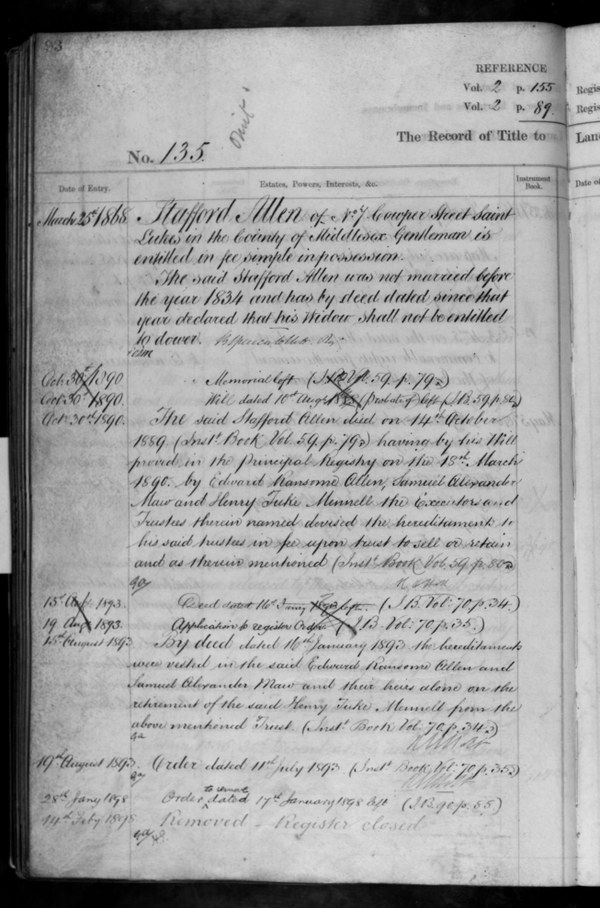 93
REFERENCE
Vol. 2 p. 155
Vol. 2 p. 89.
Regis
Regis
The Record of Title to
Land
No. 135.
Date of Entry.
Estates, Powers, Interests, &c.
Instrument Book.
Date of
March 25th 1868
Stafford Allen of No. 7 Cowper Street Saint
Lukes in the County of Middlesex Gentleman is
entitled in fee simple in possession.
The said Stafford Allen was not married before
the year 1834 and has by deed dated since that
year declared that his Widow shall not be entitled
to dower.
Oct. 30th 1890
Memorial left (I.B. Vol. 59. p. 79.)
Oct. 30th 1890.
Will dated 10th Augt (Probate of left I.B. 59. p. 80.)
Oct. 30th 1890.
The said Stafford Allen died on 14th October
1889 (Inst. Book Vol. 59. p. 79.) having by his Will
proved in the Principal Registry on the 18th March
1890. by Edward Ransome Allen, Samuel Alexander
Maw and Henry Tuke Mennell the Executors and
Trustees therein named devised the hereditaments to
his said trustees in fee upon trust to sell or retain
and as therein mentioned (Inst. Book Vol. 59. p. 80.)
15th Aug. 1893.
Deed dated 16th Jany 1893 left. (I.B. Vol: 70. p. 34.)
19 Aug. 1893.
Application to register Order (I.B. Vol: 70. p. 35.)
15th August 1893
By deed dated 16th January 1893 the hereditaments
were vested in the said Edward Ransome Allen and
Samuel Alexander Maw and their heirs alone on the
retirement of the said Henry Tuke Mennell from the
above mentioned Trust (Inst. Book Vol. 70. p. 34.)
19th August 1893.
Order dated 11th July 1893 (Inst. Book Vol: 70. p. 35.)
28th Jany 1898
Order dated 17th January 1898 left (I.B. 90. p. 55)
14th Feby 1898
Removed - Register closed